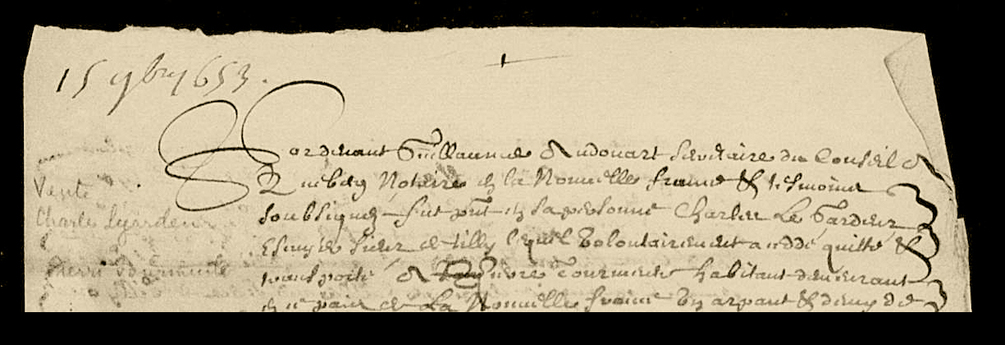 15 9bre 1653.
Vente
Charles Legardeur
Pardevant Guillaume Audouart Secretaire du Conseil de
Quebecq Notaire en la Nouvelle france & tesmoins
soubsignez fut pnt en sa personne Charles Le Gardeur
Escuyer sieur de tilly lequel volontairement a ceddé quitté &
transporté A pierre Tourmente habitant demeurant
en ce pais de La Nouvelle france un arpant & demy de